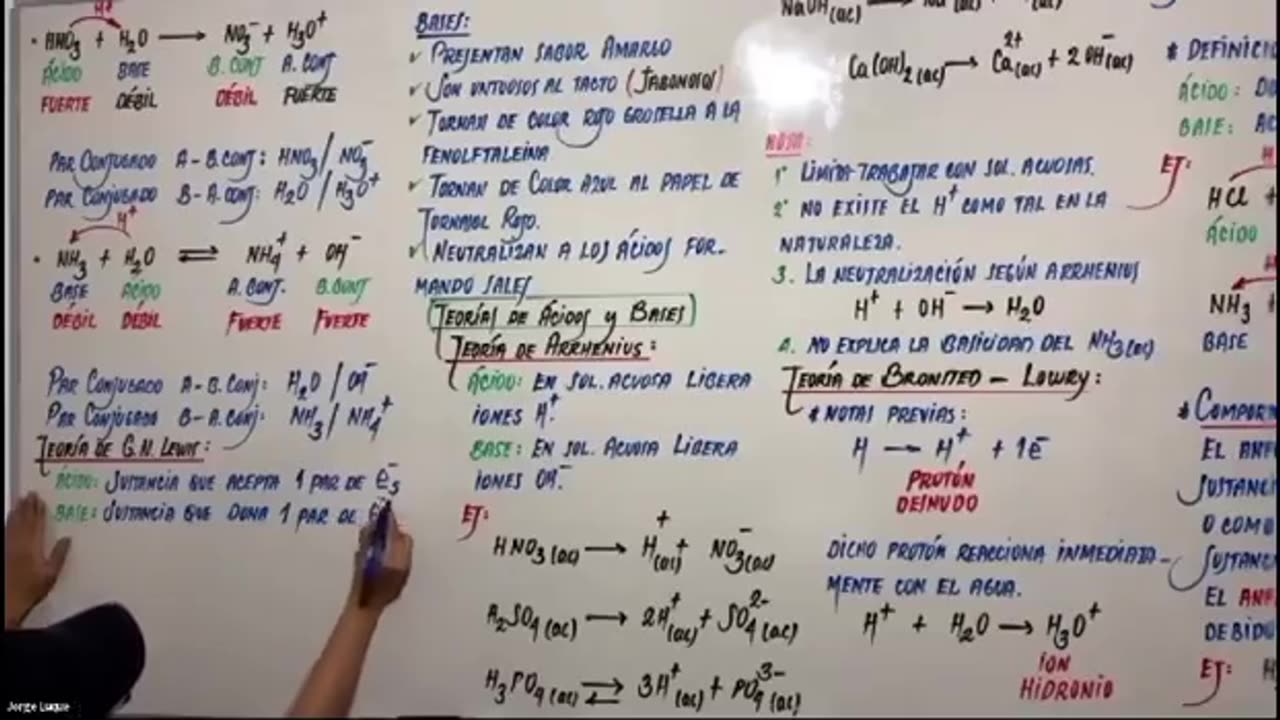 H+
• HNO3 + H2O → NO3- + H3O+
ÁCIDO BASE B. CONJ A. CONJ
FUERTE DÉBIL DÉBIL FUERTE
PAR CONJUGADO A - B.CONJ: HNO3 / NO3-
PAR CONJUGADO B - A.CONJ: H2O / H3O+
H+
• NH3 + H2O ⇌ NH4+ + OH-
BASE ÁCIDO A.CONJ. B.CONJ
DÉBIL DÉBIL FUERTE FUERTE
PAR CONJUGADO A - B.CONJ: H2O / OH-
PAR CONJUGADO B - A.CONJ: NH3 / NH4+
TEORÍA DE G.N. LEWIS:
ÁCIDO: SUSTANCIA QUE ACEPTA 1 PAR DE e-s
BASE: SUSTANCIA QUE DONA 1 PAR DE
Jorge Luque
BASES:
✓ PRESENTAN SABOR AMARGO
✓ SON UNTUOSOS AL TACTO (JABONOSOS)
✓ TORNAN DE COLOR ROJO GROSELLA A LA
FENOLFTALEINA
✓ TORNAN DE COLOR AZUL AL PAPEL DE
TORNASOL ROJO.
✓ NEUTRALIZAN A LOS ÁCIDOS FOR-
MANDO SALES
TEORÍAS DE ÁCIDOS Y BASES
TEORÍA DE ARRHENIUS:
ÁCIDO: EN SOL. ACUOSA LIBERA
IONES H+.
BASE: EN SOL. ACUOSA LIBERA
IONES OH-.
EJ:
HNO3(ac) → H+(ac) + NO3-(ac)
H2SO4(ac) → 2H+(ac) + SO4 2-(ac)
H3PO4(ac) ⇌ 3H+(ac) + PO4 3-(ac)
NaOH(ac)
Ca(OH)2(ac) → Ca2+(ac) + 2OH-(ac)
NOTA:
1° LIMITA TRABAJAR CON SOL. ACUOSAS.
2° NO EXISTE EL H+ COMO TAL EN LA
NATURALEZA.
3. LA NEUTRALIZACIÓN SEGÚN ARRHENIUS
H+ + OH- → H2O
4. NO EXPLICA LA BASICIDAD DEL NH3(ac)
TEORÍA DE BRONSTED - LOWRY:
* NOTAS PREVIAS:
H → H+ + 1e-
PROTÓN
DESNUDO
DICHO PROTÓN REACCIONA INMEDIATA-
MENTE CON EL AGUA.
H+ + H2O → H3O+
IÓN
HIDRONIO
* DEFINICI
ÁCIDO: DO
BASE: AC
EJ:
HCl +
ÁCIDO
NH3 +
BASE
* COMPORT
EL ANF
SUSTANCI
O COMO
SUSTANC
EL ANF
DEBIDO
EJ: H